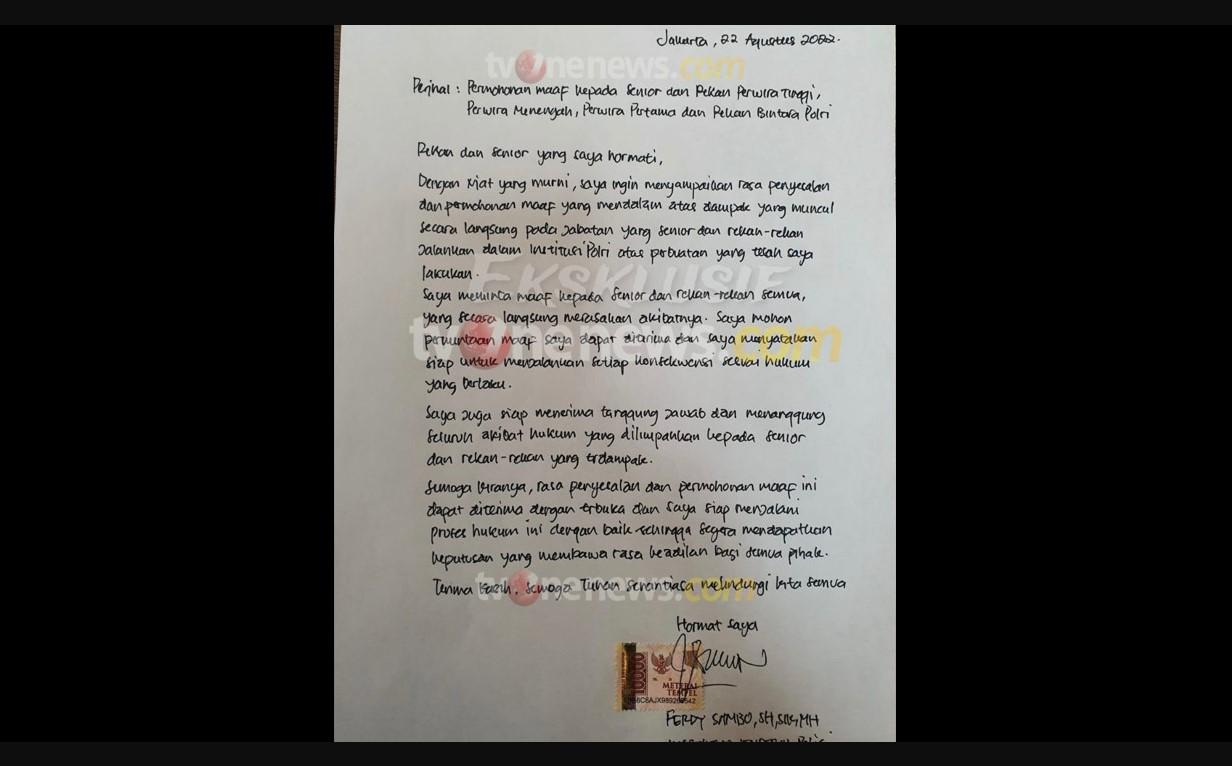 Jakarta, 22 Agustus 2022.
tvOnenews.com
Perihal : Permohonan maaf kepada Senior dan Rekan Perwira Tinggi,
Perwira Menengah, Perwira Pertama dan Rekan Bintara Polri
Rekan dan Senior yang saya hormati,
Dengan niat yang murni, saya ingin menyampaikan rasa penyesalan
dan permohonan maaf yang mendalam atas dampak yang muncul
secara langsung pada Jabatan yang senior dan rekan-rekan
Jalankan dalam Institusi Polri atas perbuatan yang telah saya
lakukan.
EKSKLUSIF
Saya meminta maaf kepada senior dan rekan-rekan semua,
yang secara langsung merasakan akibatnya. Saya mohon
tvOnenews.com
permintaan maaf saya dapat diterima dan saya menyatakan
siap untuk menjalankan setiap konsekwensi sesuai hukum
yang berlaku.
Saya juga siap menerima tanggung jawab dan menanggung
seluruh akibat hukum yang dilimpahkan kepada senior
dan rekan-rekan yang terdampak.
Semoga kiranya, rasa penyesalan dan permohonan maaf ini
dapat diterima dengan terbuka dan saya siap menjalani
proses hukum ini dengan baik sehingga segera mendapatkan
keputusan yang membawa rasa keadilan bagi semua pihak.
Terima kasih, semoga Tuhan senantiasa melindungi kita semua
tvOnenews.com
Hormat saya
10000
METERAI
TEMPEL
FERDY SAMBO, SH, SIK, MH